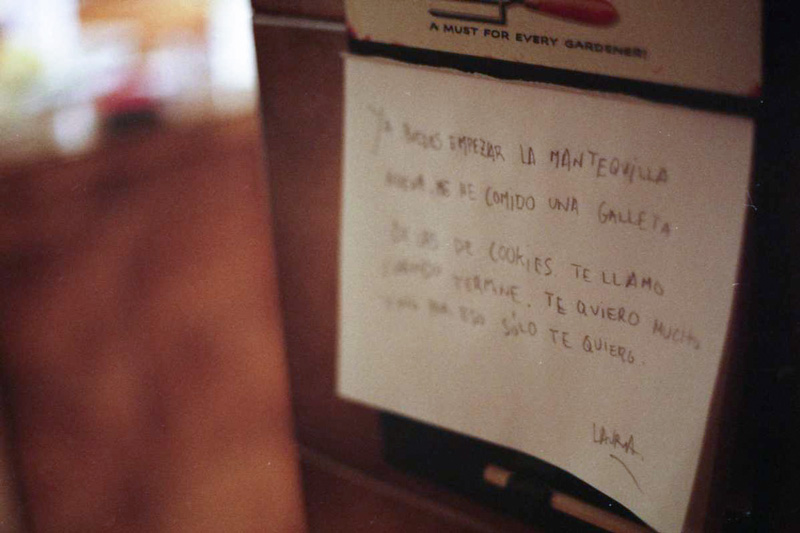 A MUST FOR EVERY GARDENER!
YA PUEDES EMPEZAR LA MANTEQUILLA
NUEVA. ME HE COMIDO UNA GALLETA
DE LAS DE COOKIES. TE LLAMO
CUANDO TERMINE. TE QUIERO MUCHO
ESO SÓLO TE QUIERO.
LAURA.